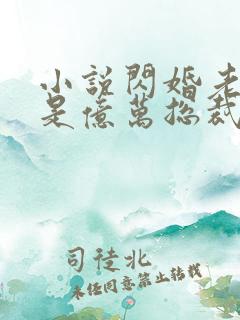 小說閃婚老
是億萬總裁
司徒北
未經同意禁止轉載